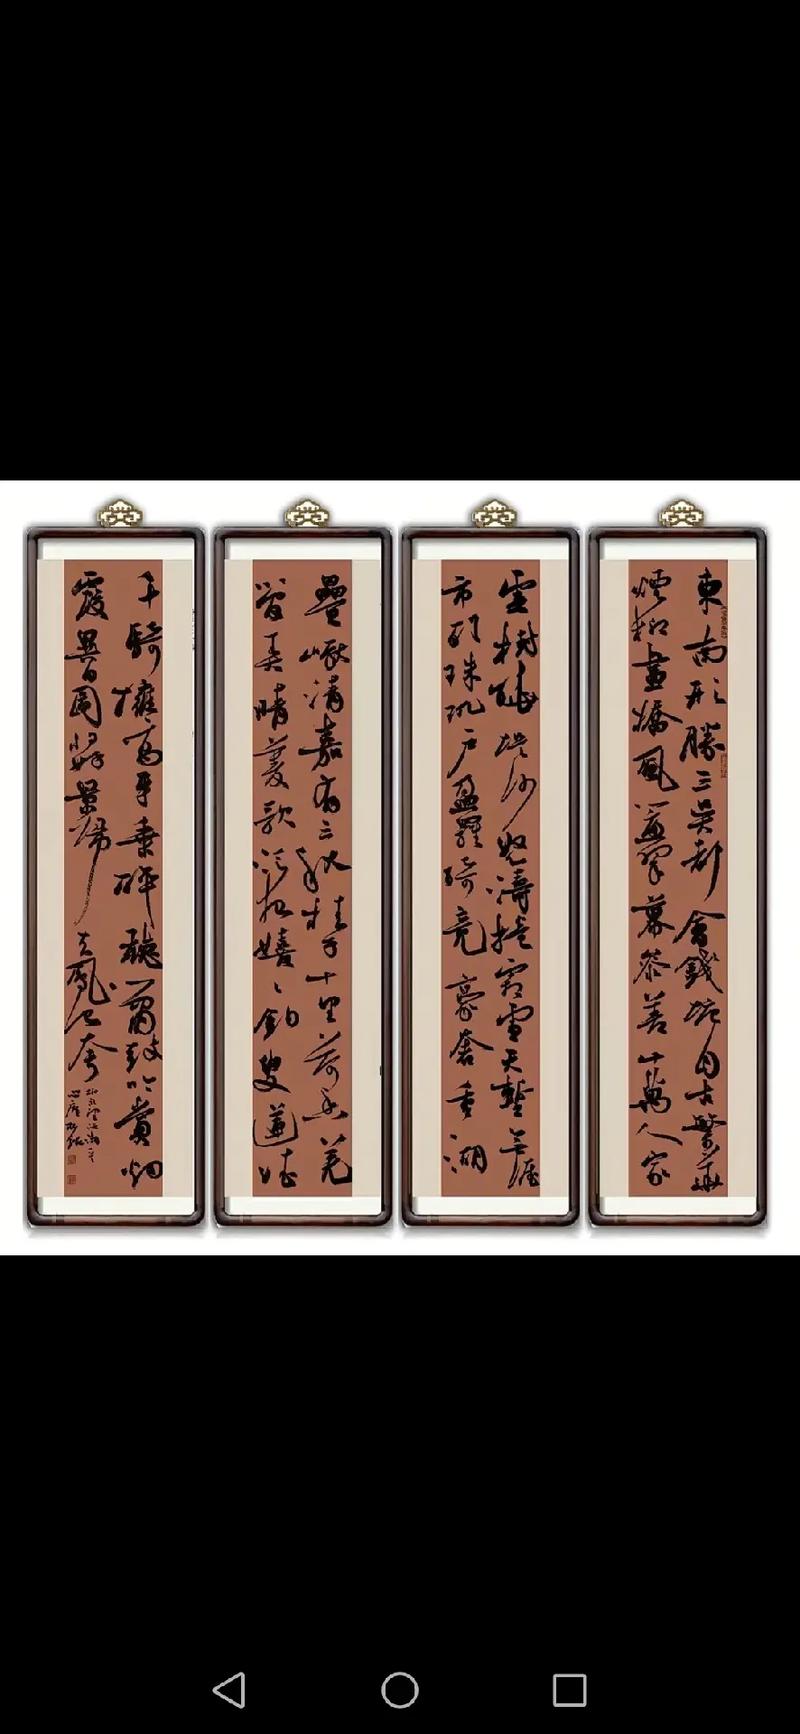 東南形勝三吳都會錢塘自古繁華
煙柳畫橋風簾翠幕參差十萬人家
雲樹繞堤沙怒濤捲霜雪天塹無涯
市列珠璣戶盈羅綺競豪奢重湖
疊巘清嘉有三秋桂子十里荷花羌
管弄晴菱歌泛夜嬉〻釣叟蓮娃
千騎擁高牙乘醉聽簫鼓吟賞烟
霞異日圖將好景歸去鳳池誇
柳永望海潮